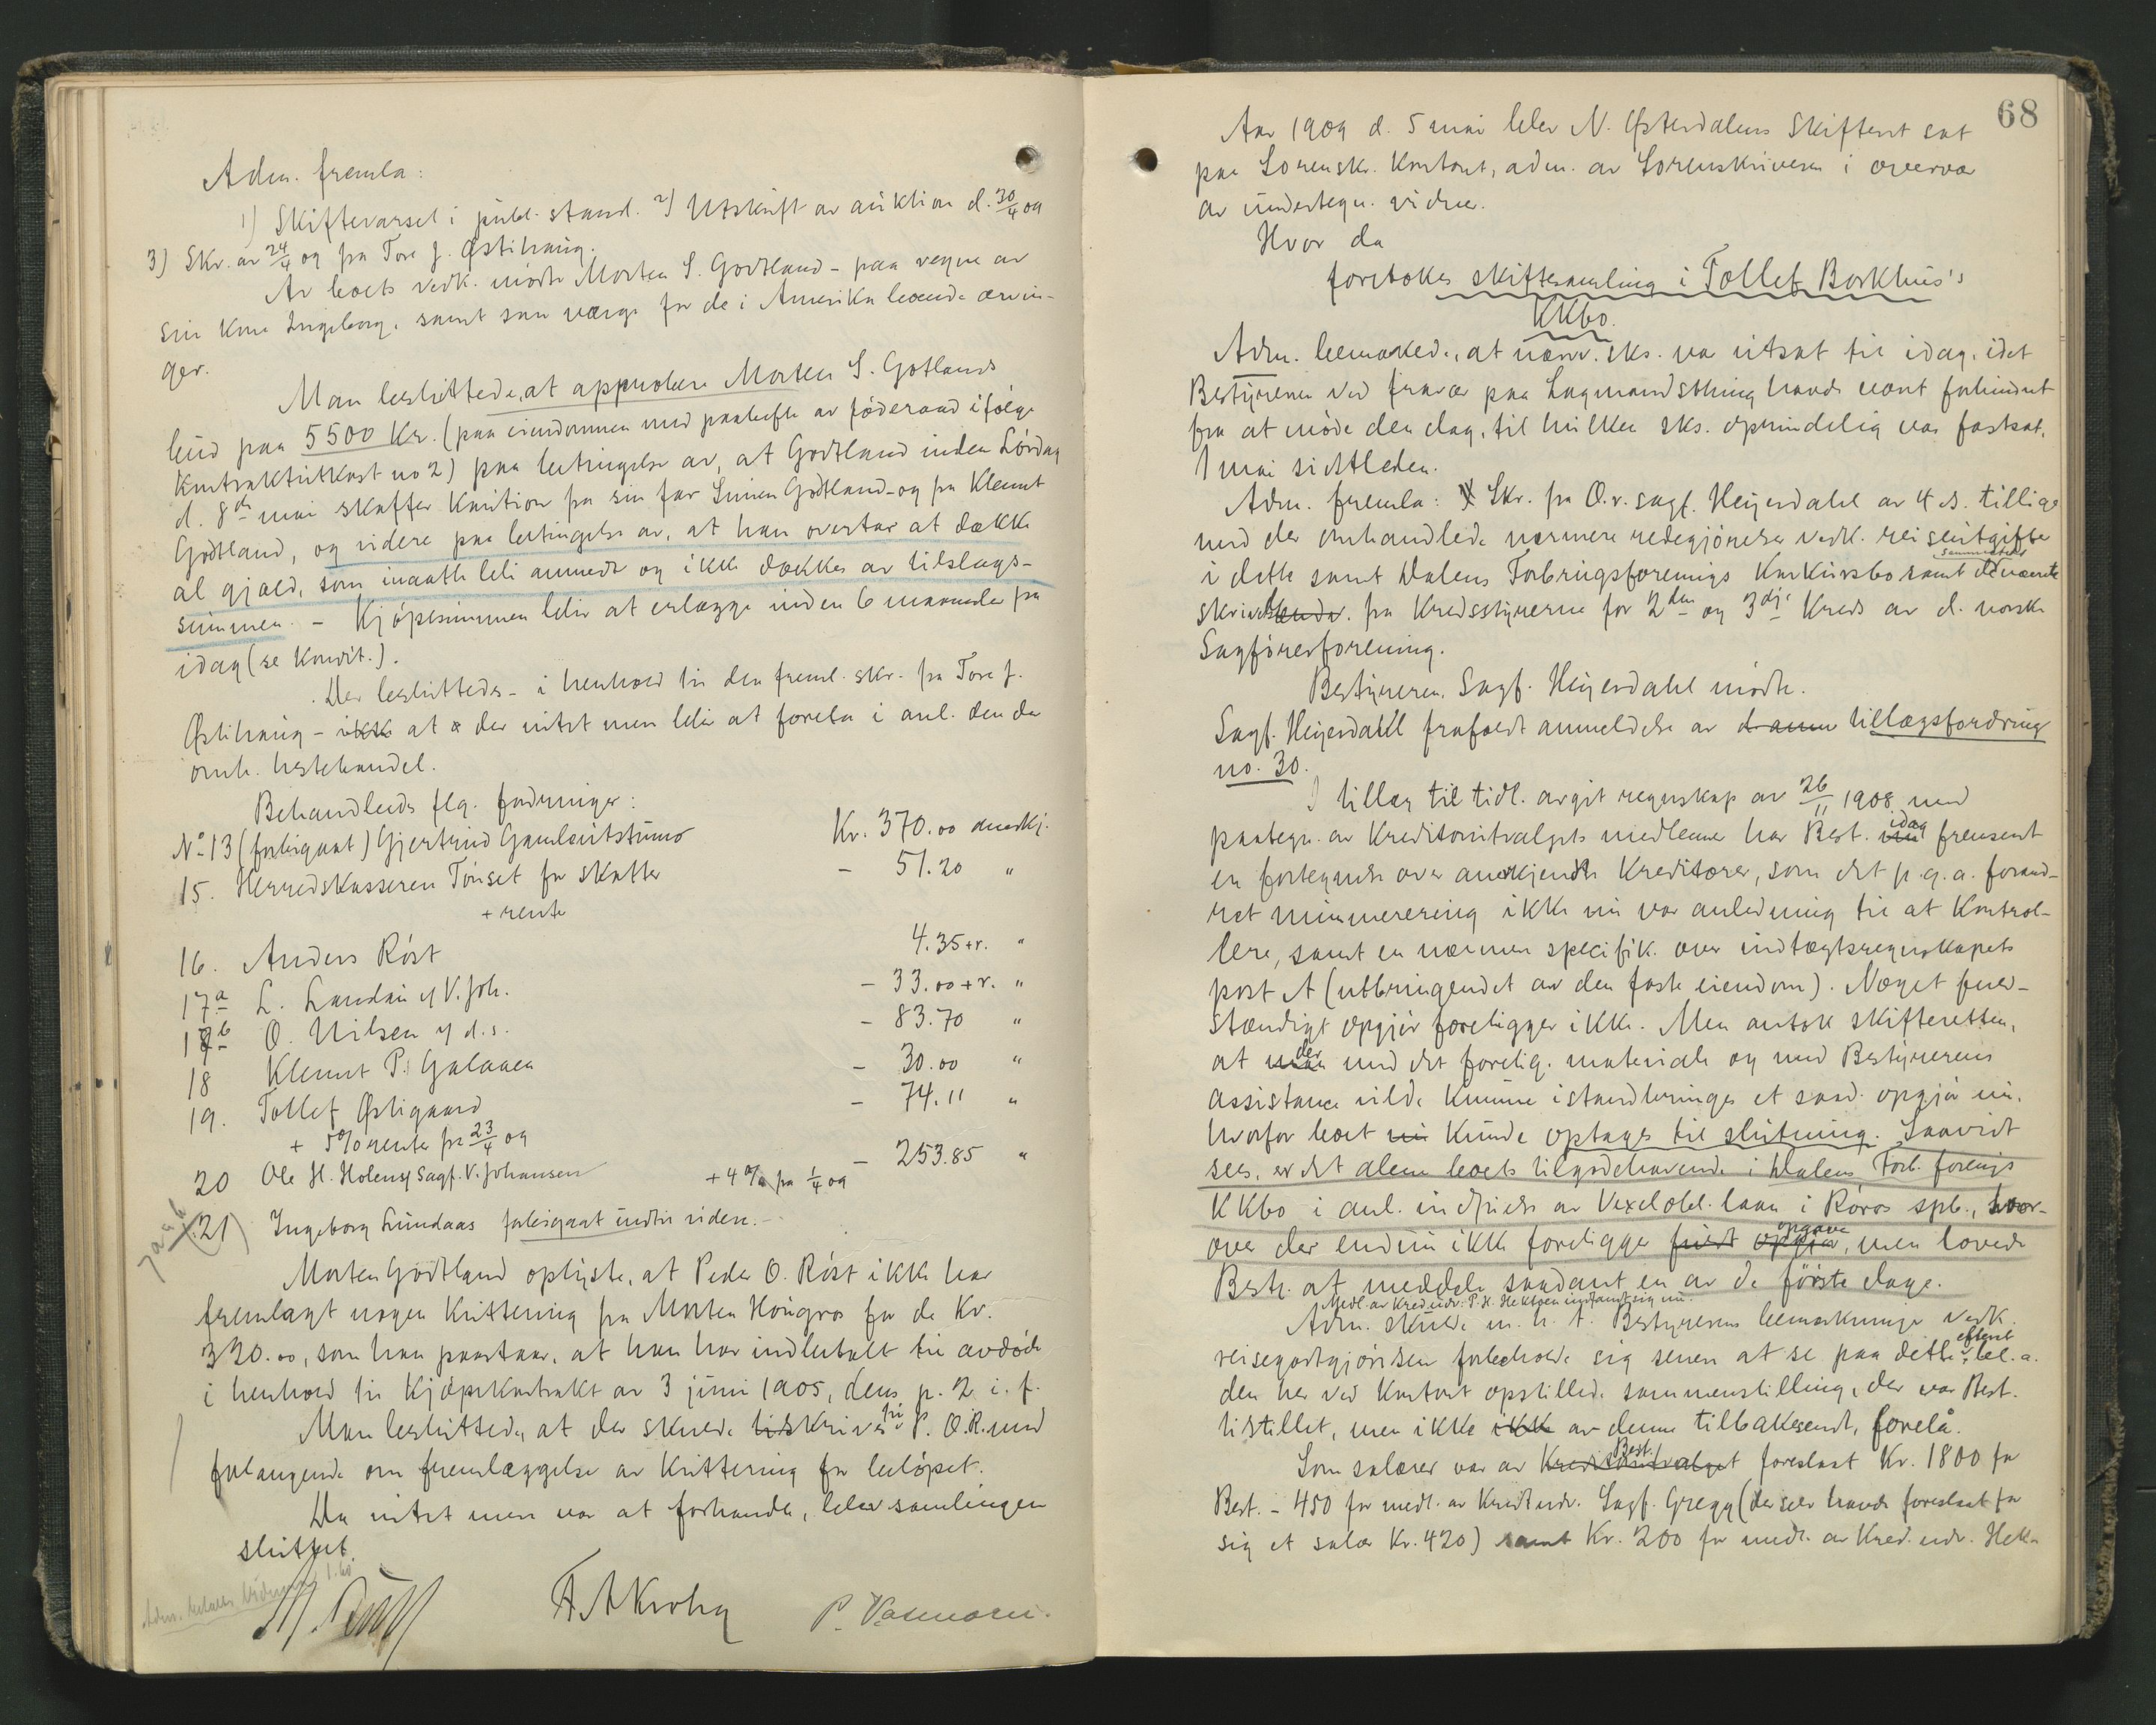 Adm. fremla:
1) Skiftevarsel i publ. stand. 2) Utskrift av auktion d. 30/4 09
3) Skr. av 24/4 09 fra Tore J. Østihaug.
Av boets vedk. mødte Morten S. Godtland - paa vegne av
sin kone Ingeborg, samt som værge for de i Amerika boende arvin-
ger.
Man besluttede, at approbere Morten S. Gotlands
bud paa 5500 Kr. (paa eiendommen med paahefte av føderaad ifølge
Kontraktutkast no 2) paa betingelse av, at Godtland inden Lørdag
d. 8de mai skaffer Kaution fra sin far Simen Godtland - og fra Klemet
Godtland, og videre paa betingelse av, at han overtar at dække
al gjæld, som maatte bli anmedt og ikke dækkes av tilslags-
summen. - Kjøpesummen blir at erlægge inden 6 maaneder fra
idag (se Kondit.).
Der besluttedes - i henhold til den freml. skr. fra Tore J.
Østihaug - ikke at der intet mere blir at foreta i anl. den der
omh. hestehandel.
Behandledes flg. fordringer:
No 13 (forligaat) Gjertrud Gamleutstumo Kr. 370.00 anerkj.
15. Herredskasseren Tønset for skatter - 51.20 "
+ rente
16. Anders Røst 4.35 + r. "
17a L. Landau v/ V. Joh. - 33.00 + r. "
17b O. Nilsen v/ d.s. - 83.70 "
18 Klemet P. Galaaen - 30.00 "
19. Tollef Østigaard - 74.11 "
+ 5% rente fra 23/4 09
20 Ole H. Holen v/ Sagf. V. Johansen +4% fra 1/4 09 - 253.85 "
(21) Ingeborg Lundaas forligaat indtil videre. -
Morten Godtland oplyste, at Peder O. Røst ikke har
fremlagt nogen Kvittering fra Morten Hougros for de Kr.
320.00, som han paastaar, at han har indbetalt til avdøde
i henhold til Kjøpekontrakt av 3 juni 1905, dens p. 2 i. f.
Man besluttede, at der skulde tilskrives til P. O. R. med
forlangende om fremlæggelse av Kvittering for beløpet.
Da intet mere var at forhandle, blev samlingen
sluttet.
Adm. betalte Vidnerne 1.60
A A Krohg P. Vasmoen.
68
Aar 1909 d. 5 mai blev N. Østerdalens Skifteret sat
paa Sorenskr. Kontort, adm. av Sorenskriveren i overvær
av undertegn. vidner.
Hvor da
foretokes skiftesamling i Tollef Borkhus's
KKbo.
Adm. bemerkede, at nærv. sks. var utsat til idag, idet
Bestyreren ved fravær paa Lagmandsthing havde vært forhindret
fra at møde den dag, til hvilken sks. oprindelig var fastsat,
1 mai sidstleden.
Adm. fremla: Skr. fra O.r. sagf. Heyerdahl av 4 ds. tillige
med der omhandlede nærmere redegjørelse vedk. reiseutgifter
i dette samt Dalens Forbrugsforenings Konkursbo samt de nævnte
skrivelser fra Kredsstyrerne for 2den og 3dje Kreds av d. norske
Sagførerforening.
Bestyreren, Sagf. Heyerdahl mødte.
Sagf. Heyerdahl frafaldt anmeldelse av tillægsfordring
no. 30.
I tillæg til tidl. avgit regnskap av 26/11 1908 med
paategn. av Kreditorutvalgets medlemmer har Best. idag fremsent
en fortegnelse over anerkjendte Kreditorer, som det p. g. a. forand-
ret nummerering ikke nu var anledning til at Kontrol-
lere, samt en nærmere specifik. over indtægtsregnskapets
post A (utbringendet av den faste eiendom). Noget fuld-
stændigt opgjør foreligger ikke. Men antok skifteretten,
at der med det forelig. materiale og med Bestyrerens
assistance vilde kunne istandbringes et saad. opgjør nu,
hvorfor boet nu kunde optages til slutning. Saavidt
sees, er det alene boets tilgodehavende i Dalens Forb. forenings
KKbo i anl. indfrielse av Vexelobl. laan i Røros spb., hvor-
over der endnu ikke foreligger opgave, men lovede
Best. at meddele saadant en av de første dage.
Medl. av Kred. udv. P. H. Hektoen indfandt sig nu.
Adm. skulde m. h. t. Bestyrerens bemerkninger vedk.
reisegodtgjørelsen forbeholde sig senere at se paa dette efterat bl. a.
den her ved Kontoret opstillede sammenstilling, der var Best.
tilstillet, men ikke ikke av denne tilbakesendt, forelå.
Som salærer var av Best. foreslaat Kr. 1800 for
Best. - 450 for medl. av Kreditudv. Sagf. Gregg (der selv havde foreslaat for
sig et salær Kr. 420) samt Kr. 200 for medl. av Kred. udv. Hek-